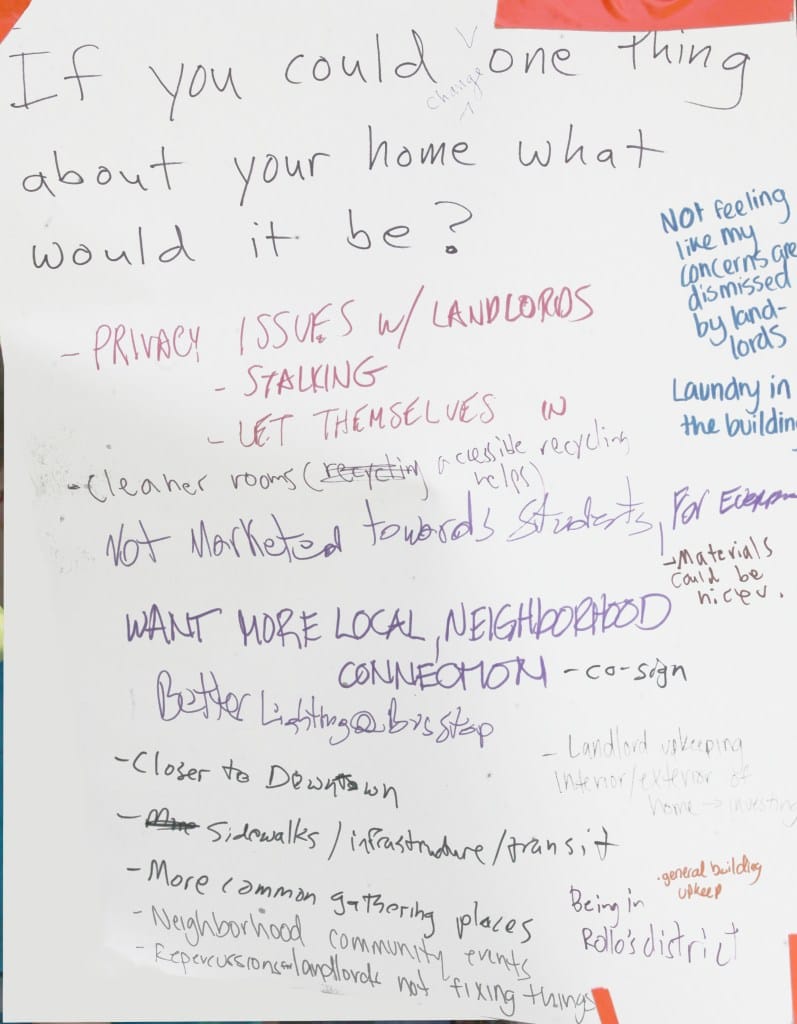 If you could change one thing
about your home what
would it be?
NOT feeling
like my
concerns are
dismissed
by land-
lords
- PRIVACY ISSUES W/ LANDLORDS
- STALKING
- LET THEMSELVES IN
Laundry in
the buildin
- Cleaner rooms (recycling accessible recycling
helps)
Not Marketed towards Students, For
- Materials
could be
nicer.
WANT MORE LOCAL, NEIGHBORHOOD
CONNECTION - co-sign
Better Lighting @ bus stop
- Landlord upkeeping
interior/exterior of
home → investing
- Closer to Downtown
- Sidewalks / infrastructure / transit
- More common gathering places
. general building
upkeep
Being in
Rollo's district
- Neighborhood community events
- Repercussions landlords not fixing things